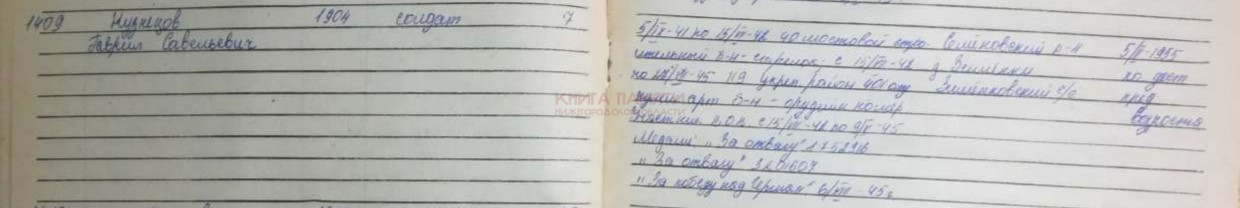 1409 Кузнецов 1904 солдат 7
Гаврил Савельевич
5/IX-41 по 15/VII-42 90 мостовой стро- Семёновский р-н 5/II-1955
ительный б-н - стрелок. с 15/VII-42 д. Зименки по дост
по VII-45 119 укреп. район 401 отд Зименковский с/с пред
арт. б-н - орудийн. номер. возраста
с 15/VII-42 по 9/V-45
Медали: „За отвагу" 1752916
„За отвагу" 3201607
„За победу над Герман" 6/VII-45г
КНИГА ПАМЯТИ
НИЖЕГОРОДСКОЙ ОБЛАСТИ